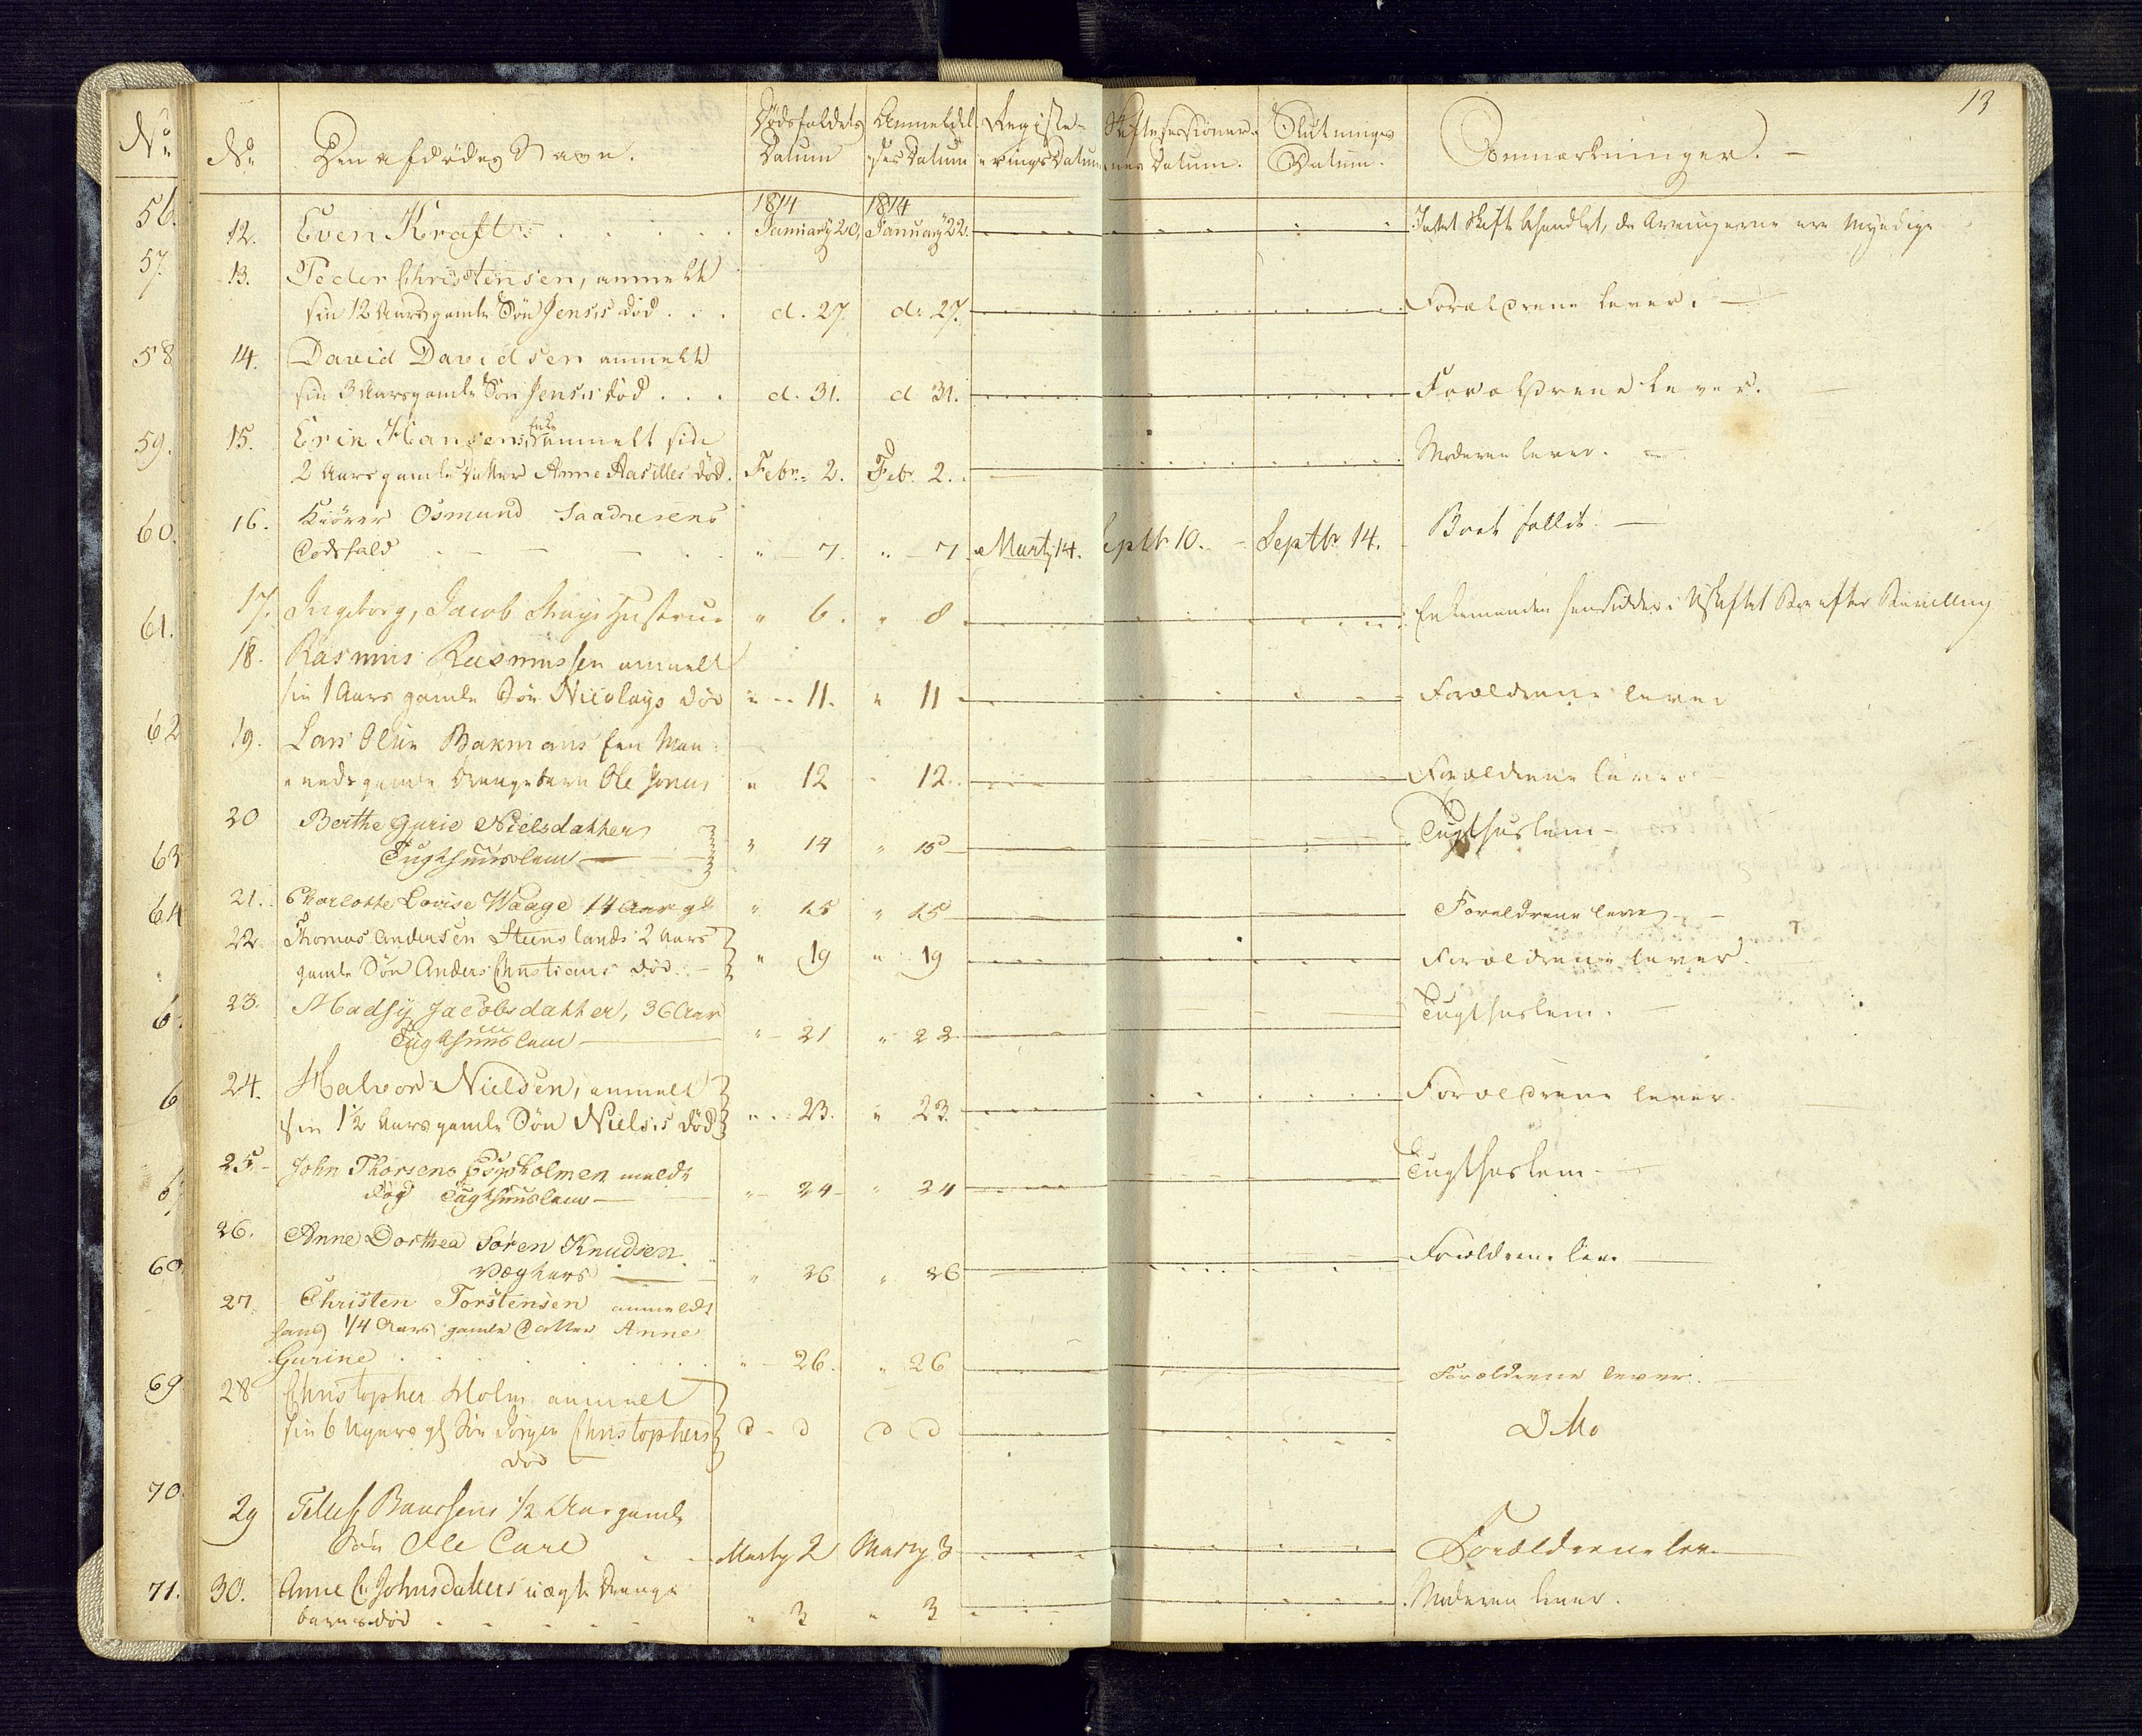 13
No
No
Den afdødes Navn.
Dødsfaldets Datum
Anmeldelses Datum
Registeringsdatum
Skiftesessionernes Datum.
Slutnings Datum.
Anmærkninger.
1814 1814
56. 12. Even Kraft January 20, January 22. Intet Skifte behandlet, da Arvingerne ere Myndige
57. 13. Peder Christensen, anmelt
sin 12 Aars gamle Søn Jens's død d. 27. d. 27. Forældrene lever.
58 14. David Davidsen anmelte
sin 3 Aars gamle Søn Jens's død d. 31. d 31. Forældrene lever.
59. 15. Erik Hansens Enke anmelt sin
2 Aars gamle Datter Anne Aasilles død. Febr. 2. Febr. 2. Moderen lever.
60. 16. Kiører Osmund Saadresens
Dødsfald " 7. " 7. Marty 14. Septbr 10. Septbr 14. Boet fallit.
61. 17. Ingeborg, Jacob Hustrue " 6. " 8. Enkemanden hensidder i Uskiftet Boe efter Bevilling
18. Rasmus Rasmussen anmelt
sin 1 Aars gamle Søn Nicolays død " 11. " 11 Forældrene lever
62 19. Lars Olsen Bakmans fem Maaneds
gamle Drengebarn Ole Jonas " 12 " 12. Forældrene lever
63 20 Berthe Gurie Nielsdatter
Tugthuuslem " 14 " 15 Tugthuslem
64 21. Charlotte Lovise Waage 14 Aar gl " 15 " 15 Forældrene lever
22. Thomas Andersen Steenslands 2 Aars
gamle Søn Anders Christians død " 19 " 19 Forældrene lever.
6 23. Madsy Jacobsdatter, 36 Aar
Tugthuuslem " 21 " 22 Tugthuslem.
6 24. Halvor Nielsen, anmelt
sin 1½ Aars gamle Søn Niels's død " 23. " 23. Forældrene lever.
6 25. John Thorsens Gypsholmen meldt
død Tugthuuslem " 24 " 24 Tugthuslem
26. Anne Dorthea Søren Knudsen
Vægters " 26 " 26 Forældrene leve
27. Christen Torstensen anmeldt
hans 1/4 Aars gamle Datter Anne
Gurine " 26. " 26 Forældrene lever.
69 28 Christopher Holm anmelt
sin 6 Ugers gl Søn Jørgen Christophers
død D D D D Ditto
70. 29 Tellef Baarsens 1/2 Aar gamle
Søn Ole Carl Marty 2 Marty 3 Forældrene lev
71. 30. Anne C. Johnsdatters uægte Drenge
barns død " 3 " 3 Moderen lever.